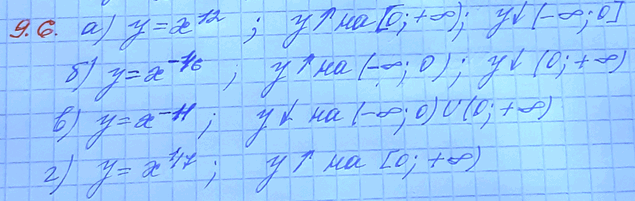 9.6. а) y = x¹² ; y↑ на [0; +∞); y↓ (-∞; 0]
б) y = x⁻¹⁶ ; y↑ на (-∞; 0) ; y↓ (0; +∞)
в) y = x⁻¹¹ ; y↓ на (-∞; 0) ∪ (0; +∞)
г) y = x^1/7 ; y↑ на [0; +∞)